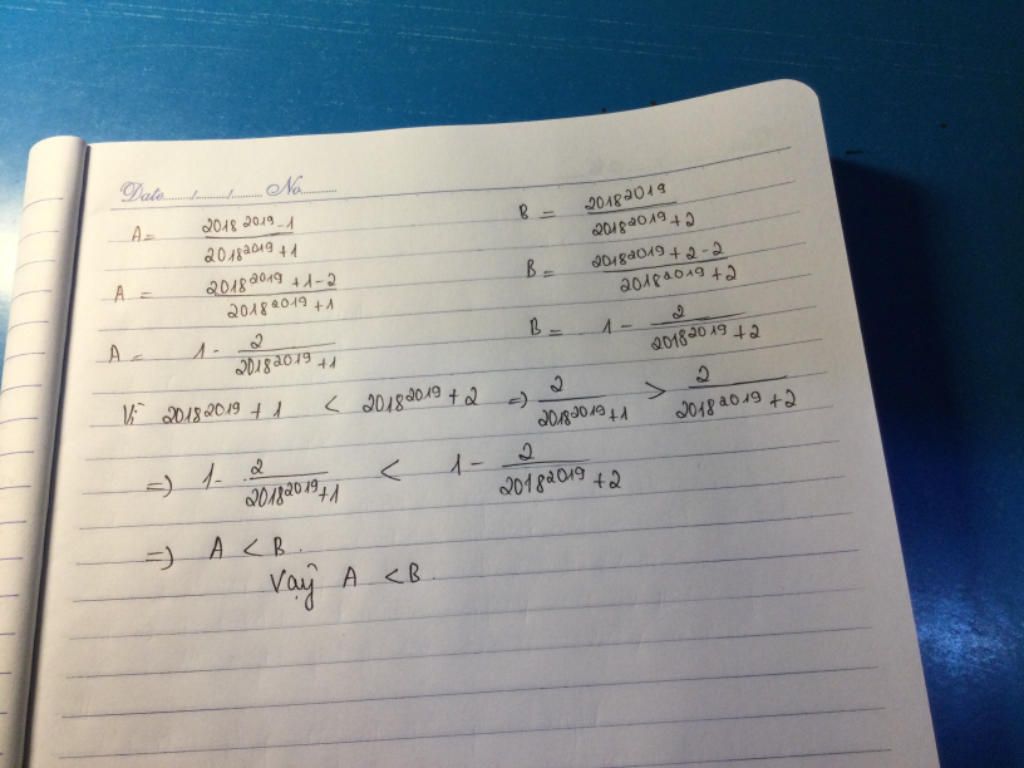 Date...../...../......... No...........
A = \frac{2018^{2019} - 1}{2018^{2019} + 1}    B = \frac{2018^{2019}}{2018^{2019} + 2}
A = \frac{2018^{2019} + 1 - 2}{2018^{2019} + 1}    B = \frac{2018^{2019} + 2 - 2}{2018^{2019} + 2}
A = 1 - \frac{2}{2018^{2019} + 1}    B = 1 - \frac{2}{2018^{2019} + 2}
Vì 2018^{2019} + 1 < 2018^{2019} + 2 => \frac{2}{2018^{2019} + 1} > \frac{2}{2018^{2019} + 2}
=> 1 - \frac{2}{2018^{2019} + 1} < 1 - \frac{2}{2018^{2019} + 2}
=> A < B.
Vậy A < B.